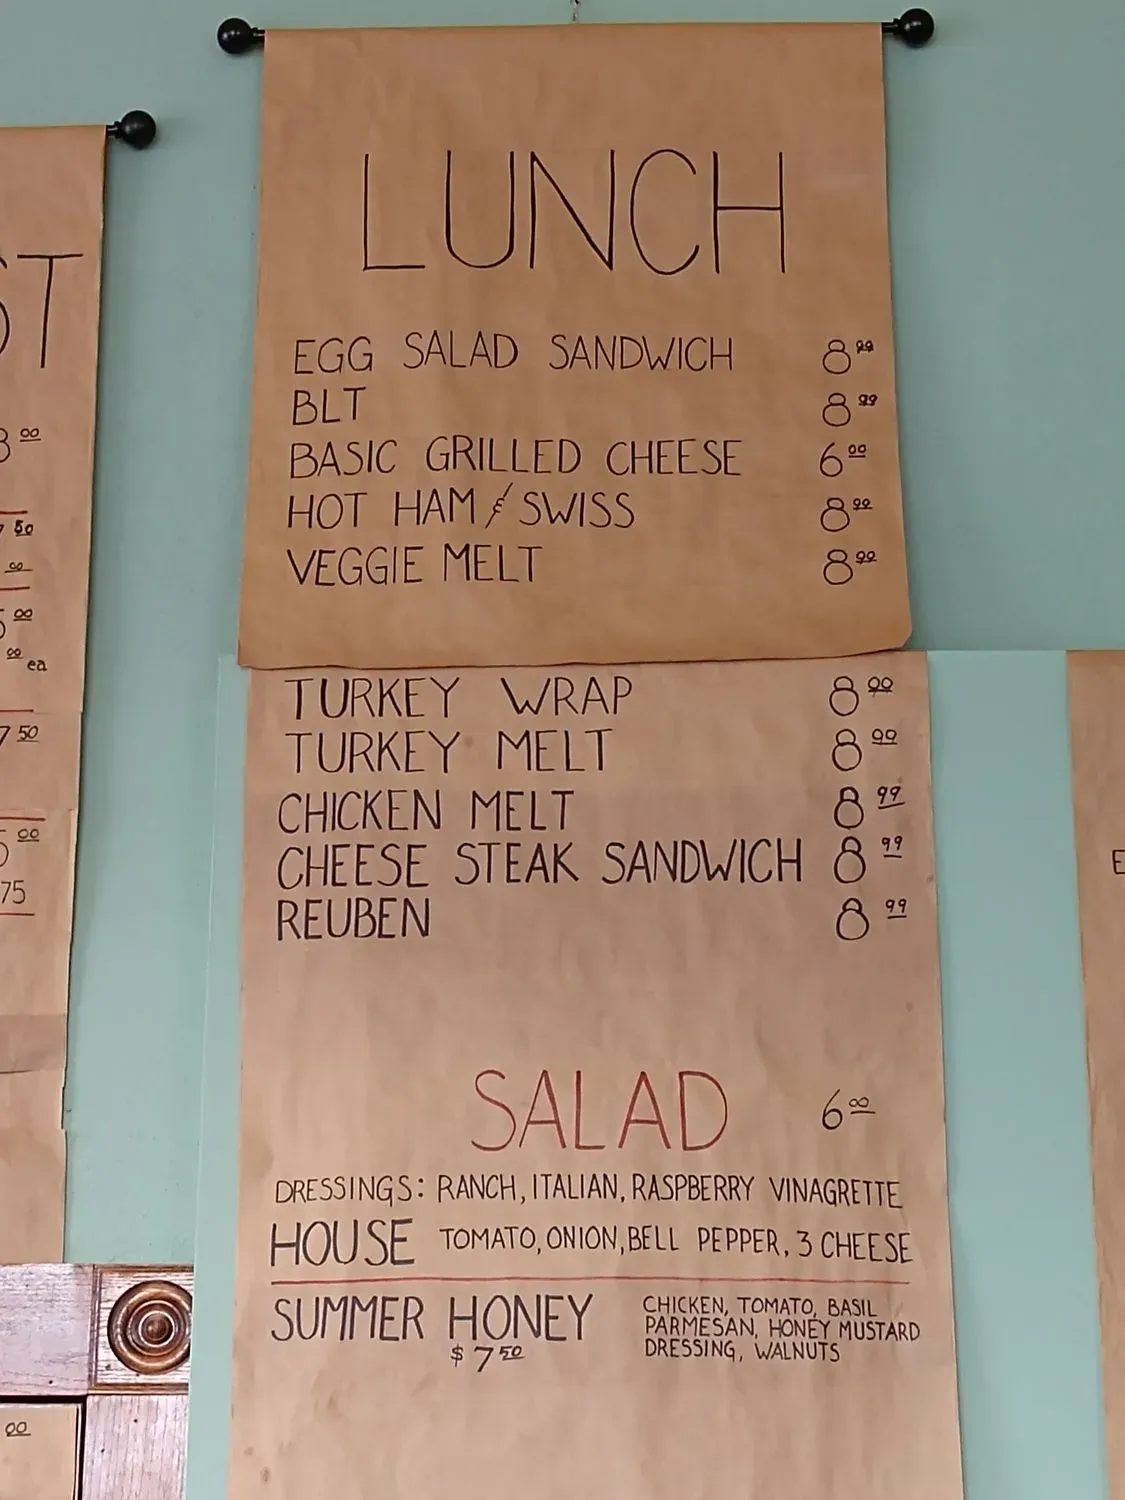 LUNCH
EGG SALAD SANDWICH 8 99
BLT 8 99
BASIC GRILLED CHEESE 6 00
HOT HAM & SWISS 8 99
VEGGIE MELT 8 99
TURKEY WRAP 8 99
TURKEY MELT 8 99
CHICKEN MELT 8 99
CHEESE STEAK SANDWICH 8 99
REUBEN 8 99
SALAD 6 00
DRESSINGS: RANCH, ITALIAN, RASPBERRY VINAGRETTE
HOUSE TOMATO, ONION, BELL PEPPER, 3 CHEESE
SUMMER HONEY CHICKEN, TOMATO, BASIL
PARMESAN, HONEY MUSTARD
$ 7 50 DRESSING, WALNUTS
ST
00
50
00
00
00 ea
7 50
00
75
00